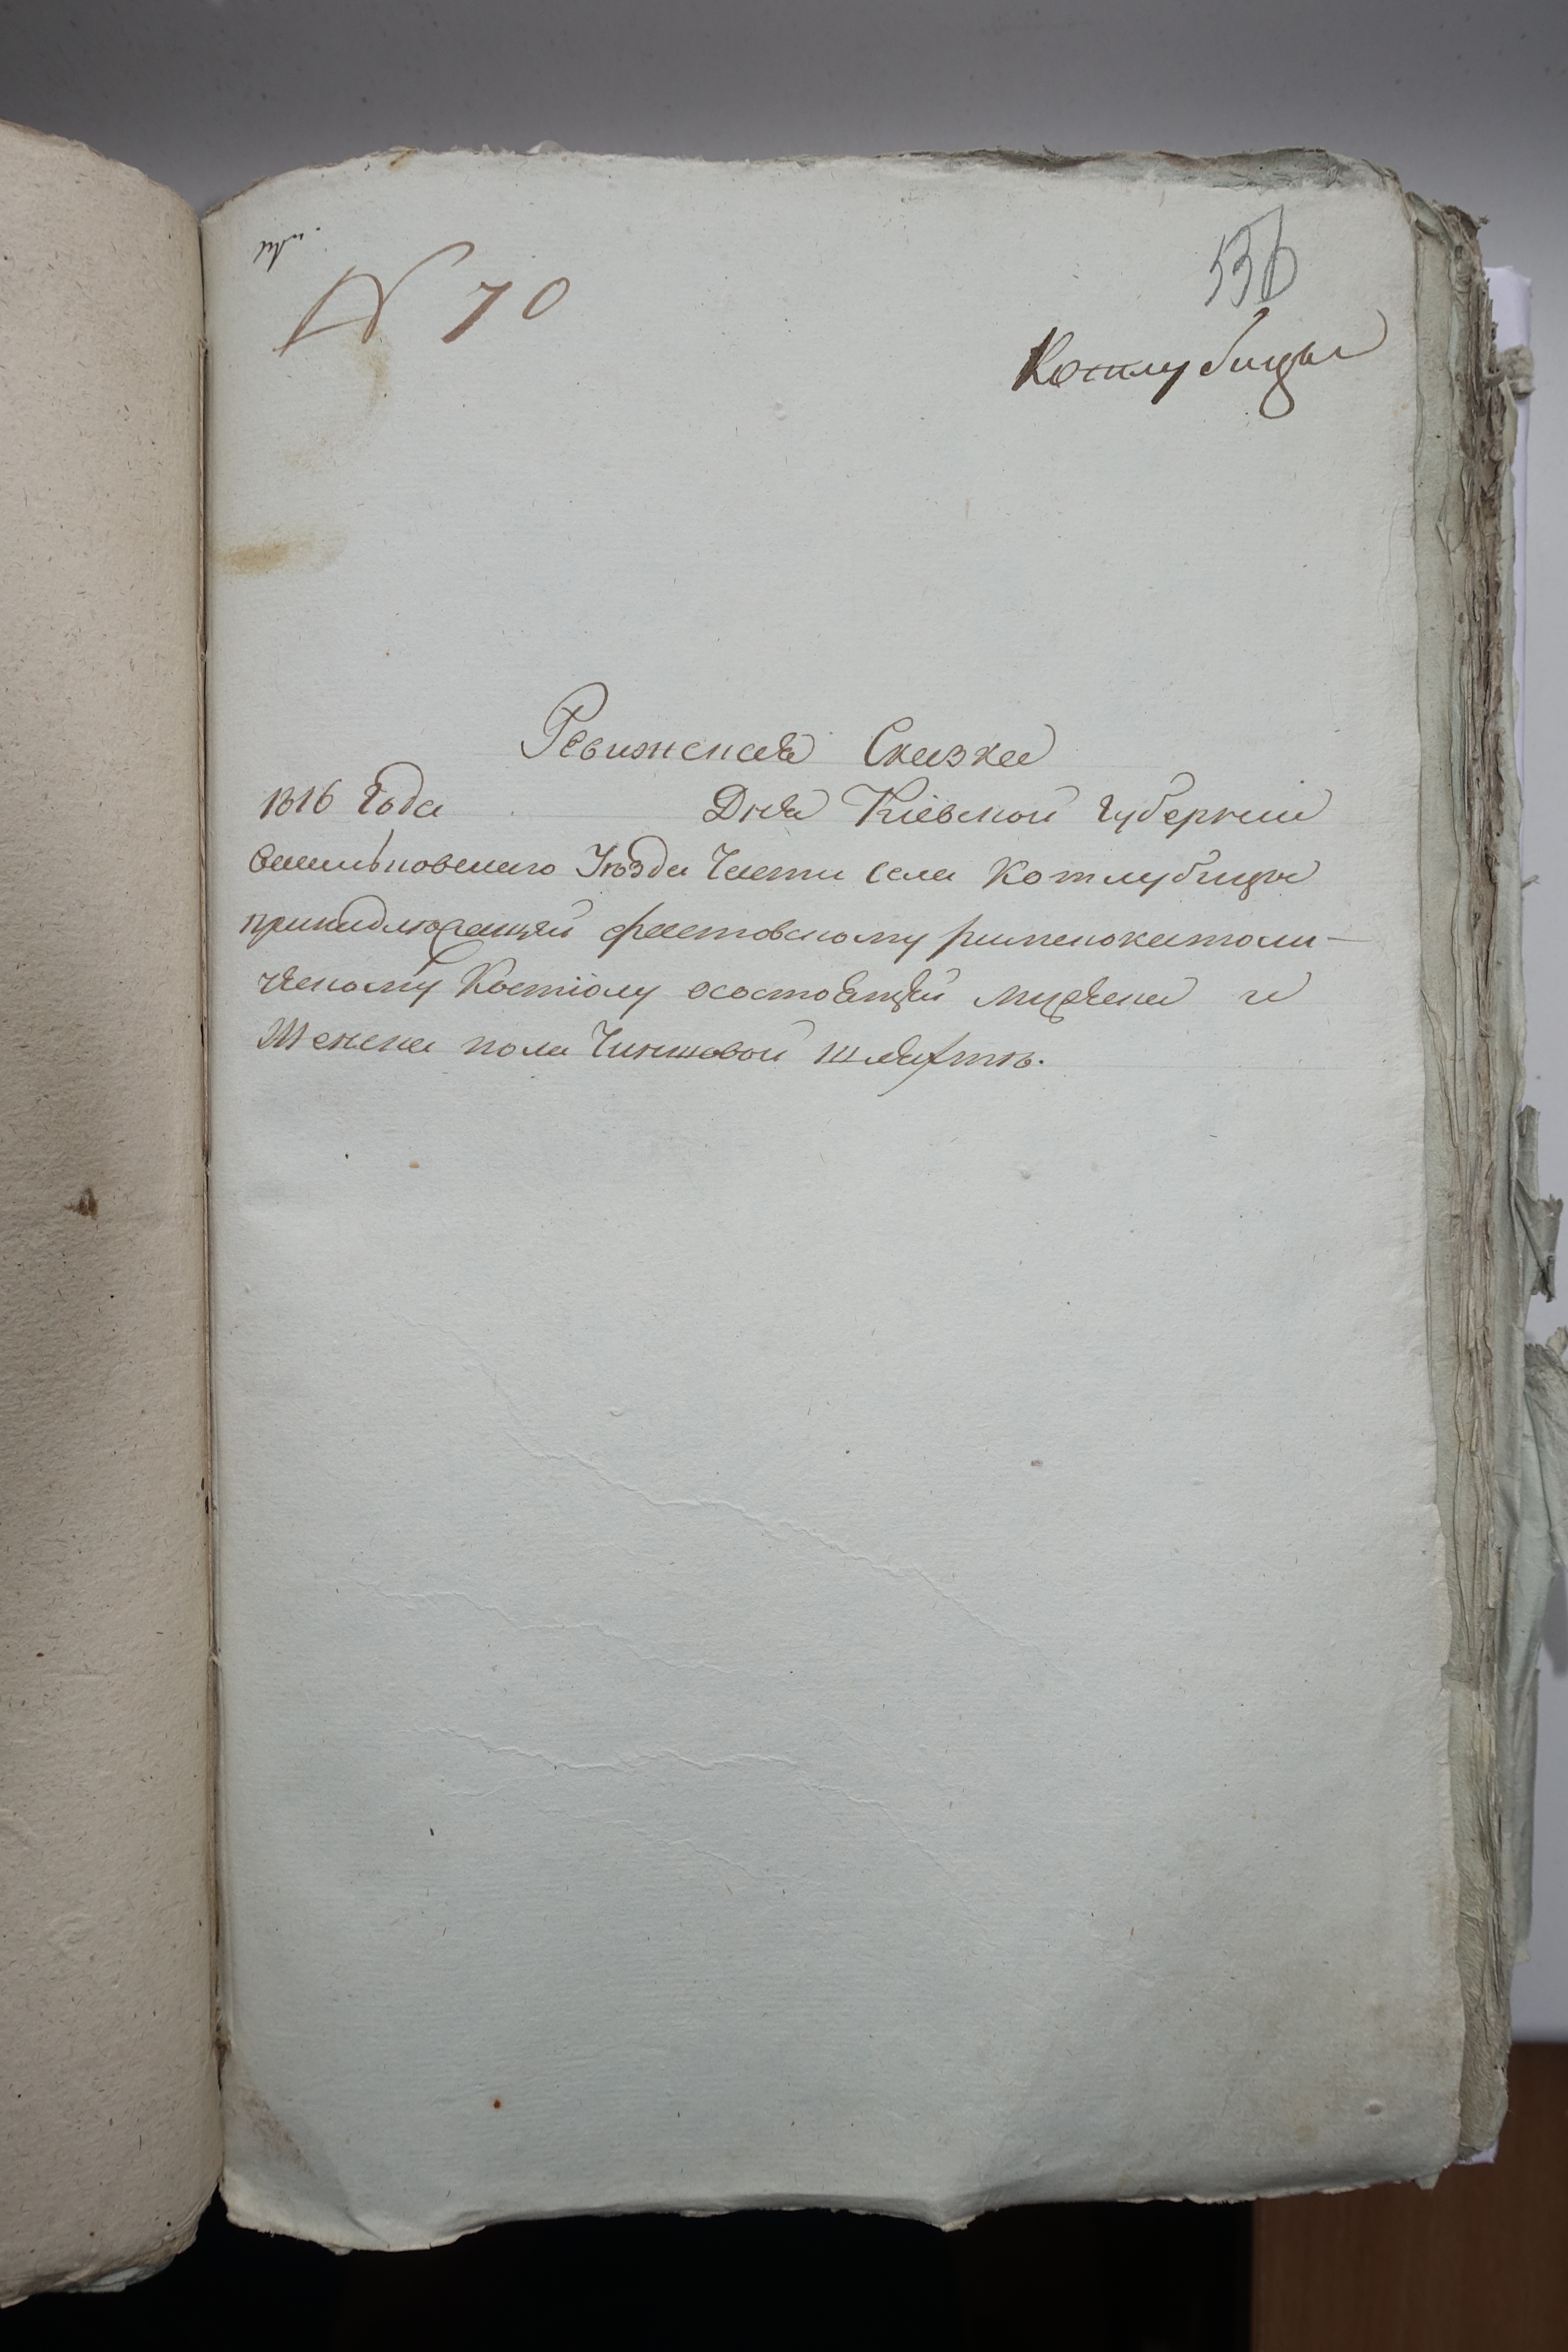 N 70
536
Котлубицы
Ревижская Сказка
1816 Года Дня Кіевской Губерніи
Васильковского Уѣзда Части Села Котлубицы
принадлежащей фастовскому римскокатоли-
ческому Костіолу осостоящей мужеска и
Женска пола Чиншовой шляхтѣ.